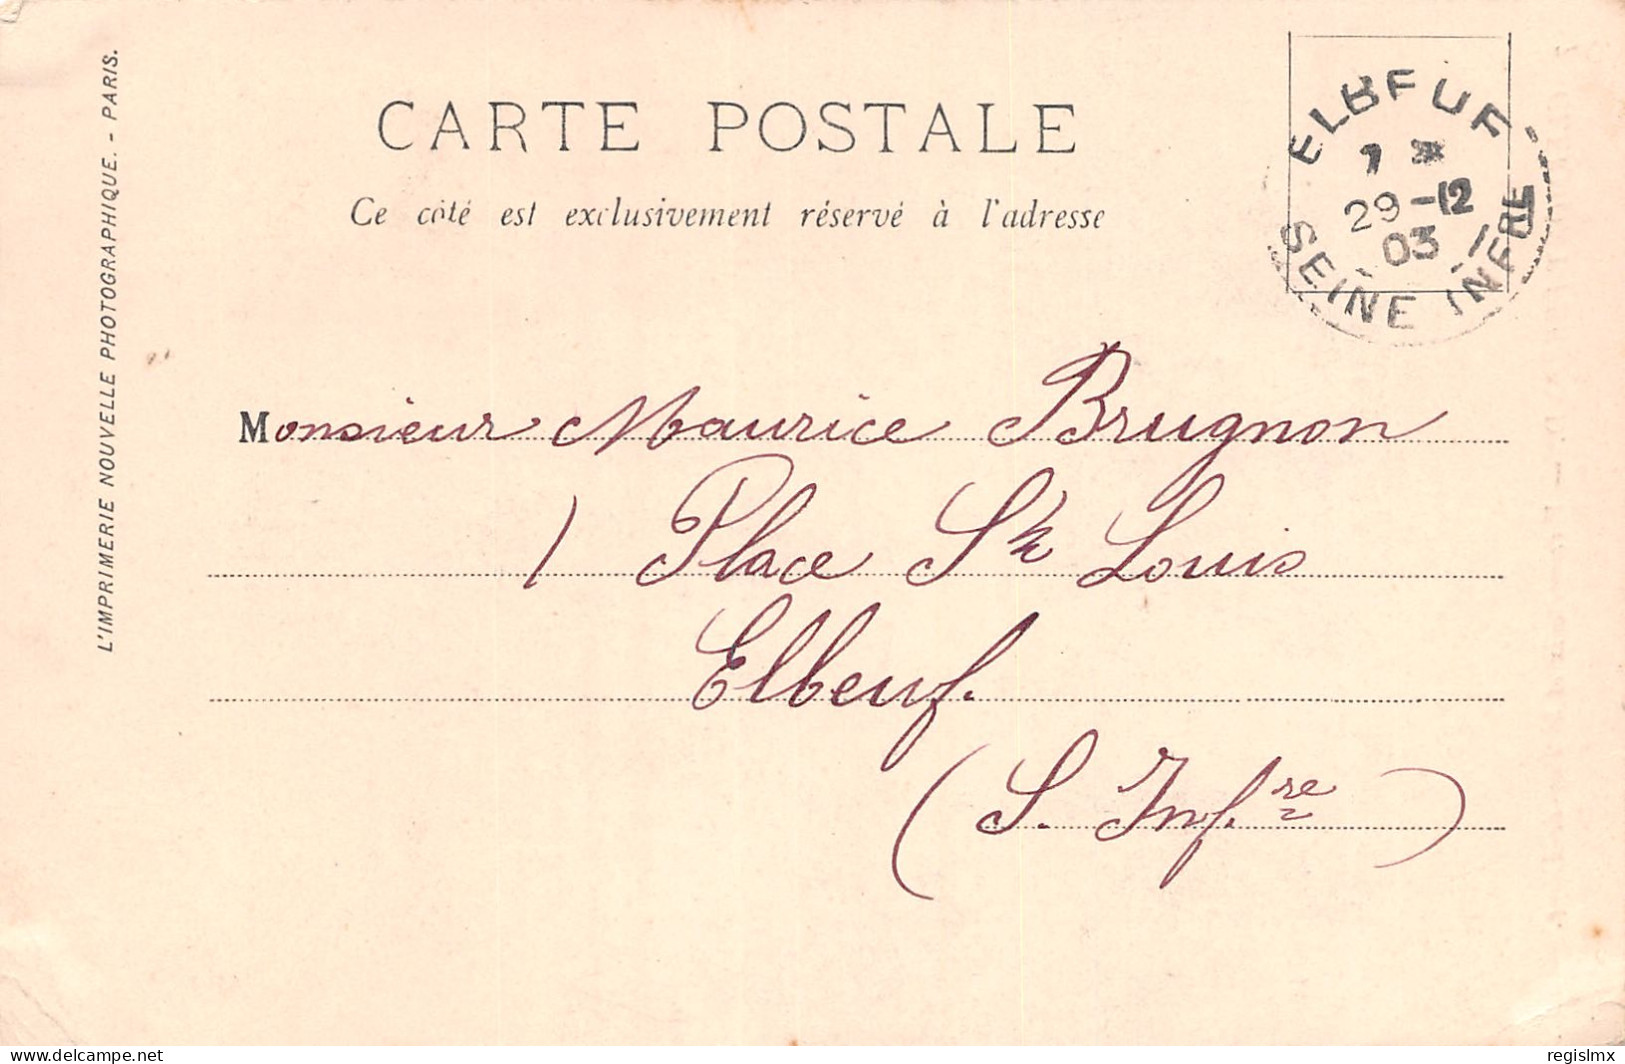 L'IMPRIMERIE NOUVELLE PHOTOGRAPHIQUE. - PARIS.
CARTE POSTALE
Ce côté est exclusivement réservé à l'adresse
ELBEUF
7 *
29 -12
03
SEINE INFRE
Monsieur Maurice Brugnon
1 Place St Louis
Elbeuf.
(S. Inf.re)
delcampe.net
regislmx